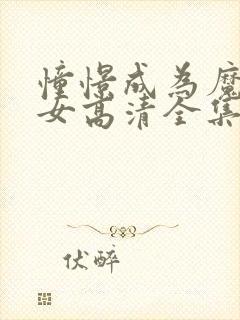 憧憬成为魔
女高清全集
伏醉